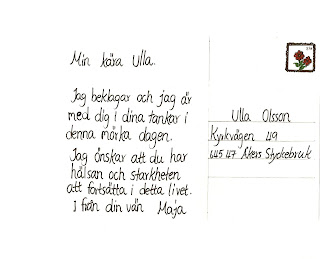 Min kära Ulla.
Jag beklagar och jag är
med dig i dina tankar i
denna mörka dagen.
Jag önskar att du har
hälsan och starkheten
att fortsätta i detta livet.
I från din vän Maja
Ulla Olsson
Kyrkvägen 49
645 47 Åkers Styckebruk